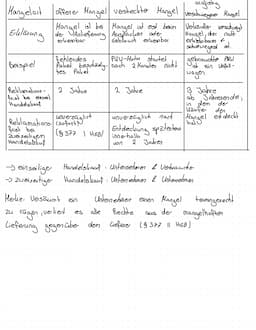 Mangelart
offener Mangel
versteckter Mangel
verschwiegener Mangel
Erklärung
Mangel ist bei
der Warenlieferung
erkennbar
Mangel ist erst beim
Ausprobieren oder
Gebrauch erkennbar
Verkäufer verschweigt
Mangel, der nicht
erkennbar
Beispiel
fehlendes
Paket
Paket
nach 2 Monaten nicht
gebrauchter PKW
ist ein Unfall-
wagen
Reklamations-
frist bei einseit.
Handelskauf
2 Jahre
2 Jahre
3 Jahre
ab Jahresende,
in dem der
Käufer den
Mangel entdeckt
hat
Reklamations-
frist bei
zweiseitigem
Handelskauf
unverzüglich
(sofort)
(§ 377 I HGB)
unverzüglich nach
Entdeckung, spätestens
innerhalb
von 2 Jahren
→ einseitiger Handelskauf: Unternehmer & Verbraucher
→ zweiseitiger Handelskauf: Unternehmer & Unternehmer
Merke: Versäumt ein Unternehmer einen Mangel termingerecht
zu rügen, verliert er alle Rechte aus der mangelhaften
Lieferung gegenüber dem Lieferer (§ 377 II HGB)